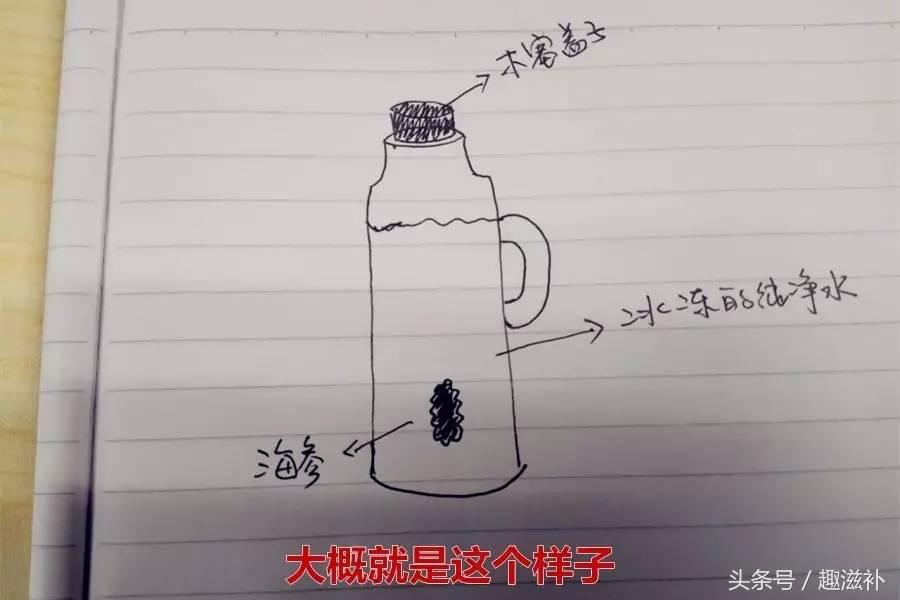 木塞盖子
冰冻的纯净水
海参
大概就是这个样子
头条号 / 趣滋补